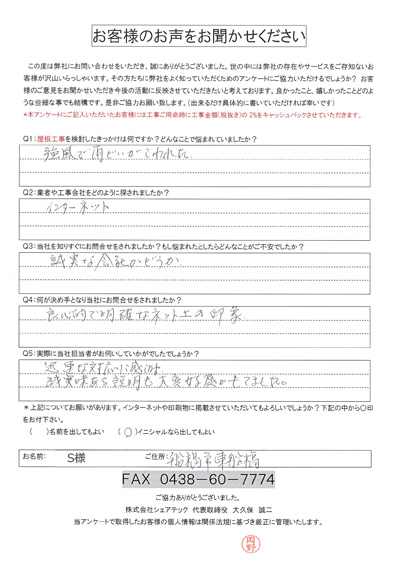 お客様のお声をお聞かせください
この度は弊社にお問い合わせをいただき、誠にありがとうございました。世の中には弊社の存在やサービスをご存知ないお
客様が沢山いらっしゃいます。その方たちに弊社をよく知っていただくためのアンケートにご協力いただけるでしょうか? お客
様のご意見をお聞かせいただき今後の活動に反映させていただきたいと考えております。良かったこと、嬉しかったことどのよ
うな些細な事でも結構です。是非ご協力お願い致します。(出来るだけ具体的に書いていただければ幸いです)
*本アンケートにご記入いただいたお客様には工事ご用命時に工事金額(税抜き)の2%をキャッシュバックさせていただきます
Q1:屋根工事を検討したきっかけは何ですか?どんなことで悩まれていましたか?
強風で雨どいがこわれた
Q2:業者や工事会社をどのように探されましたか?
インターネット
Q3:当社を知りすぐにお問合せをされましたか?もし悩まれたとしたらどんなことがご不安でしたか?
誠実な会社かどうか
Q4:何が決め手となり当社にお問合せをされましたか?
良心的で明確なネット上の印象
Q5:実際に当社担当者がお伺いしていかがでしたでしょうか?
迅速な対応に感謝
誠実味ある説明も大変好感がもてました。
*上記についてお願いがあります。インターネットや印刷物に掲載させていただいてもよろしいでしょうか?下記の中から〇印
をお付下さい。
( )名前を出してもよい (○)イニシャルなら出してもよい
お名前: S様 ご住所: 船橋市東船橋
FAX 0438-60-7774
ご協力ありがとうございました。
株式会社シェアテック 代表取締役 大久保 誠二
当アンケートで取得したお客様の個人情報は関係法規に基づき厳正に管理いたします。
岡野